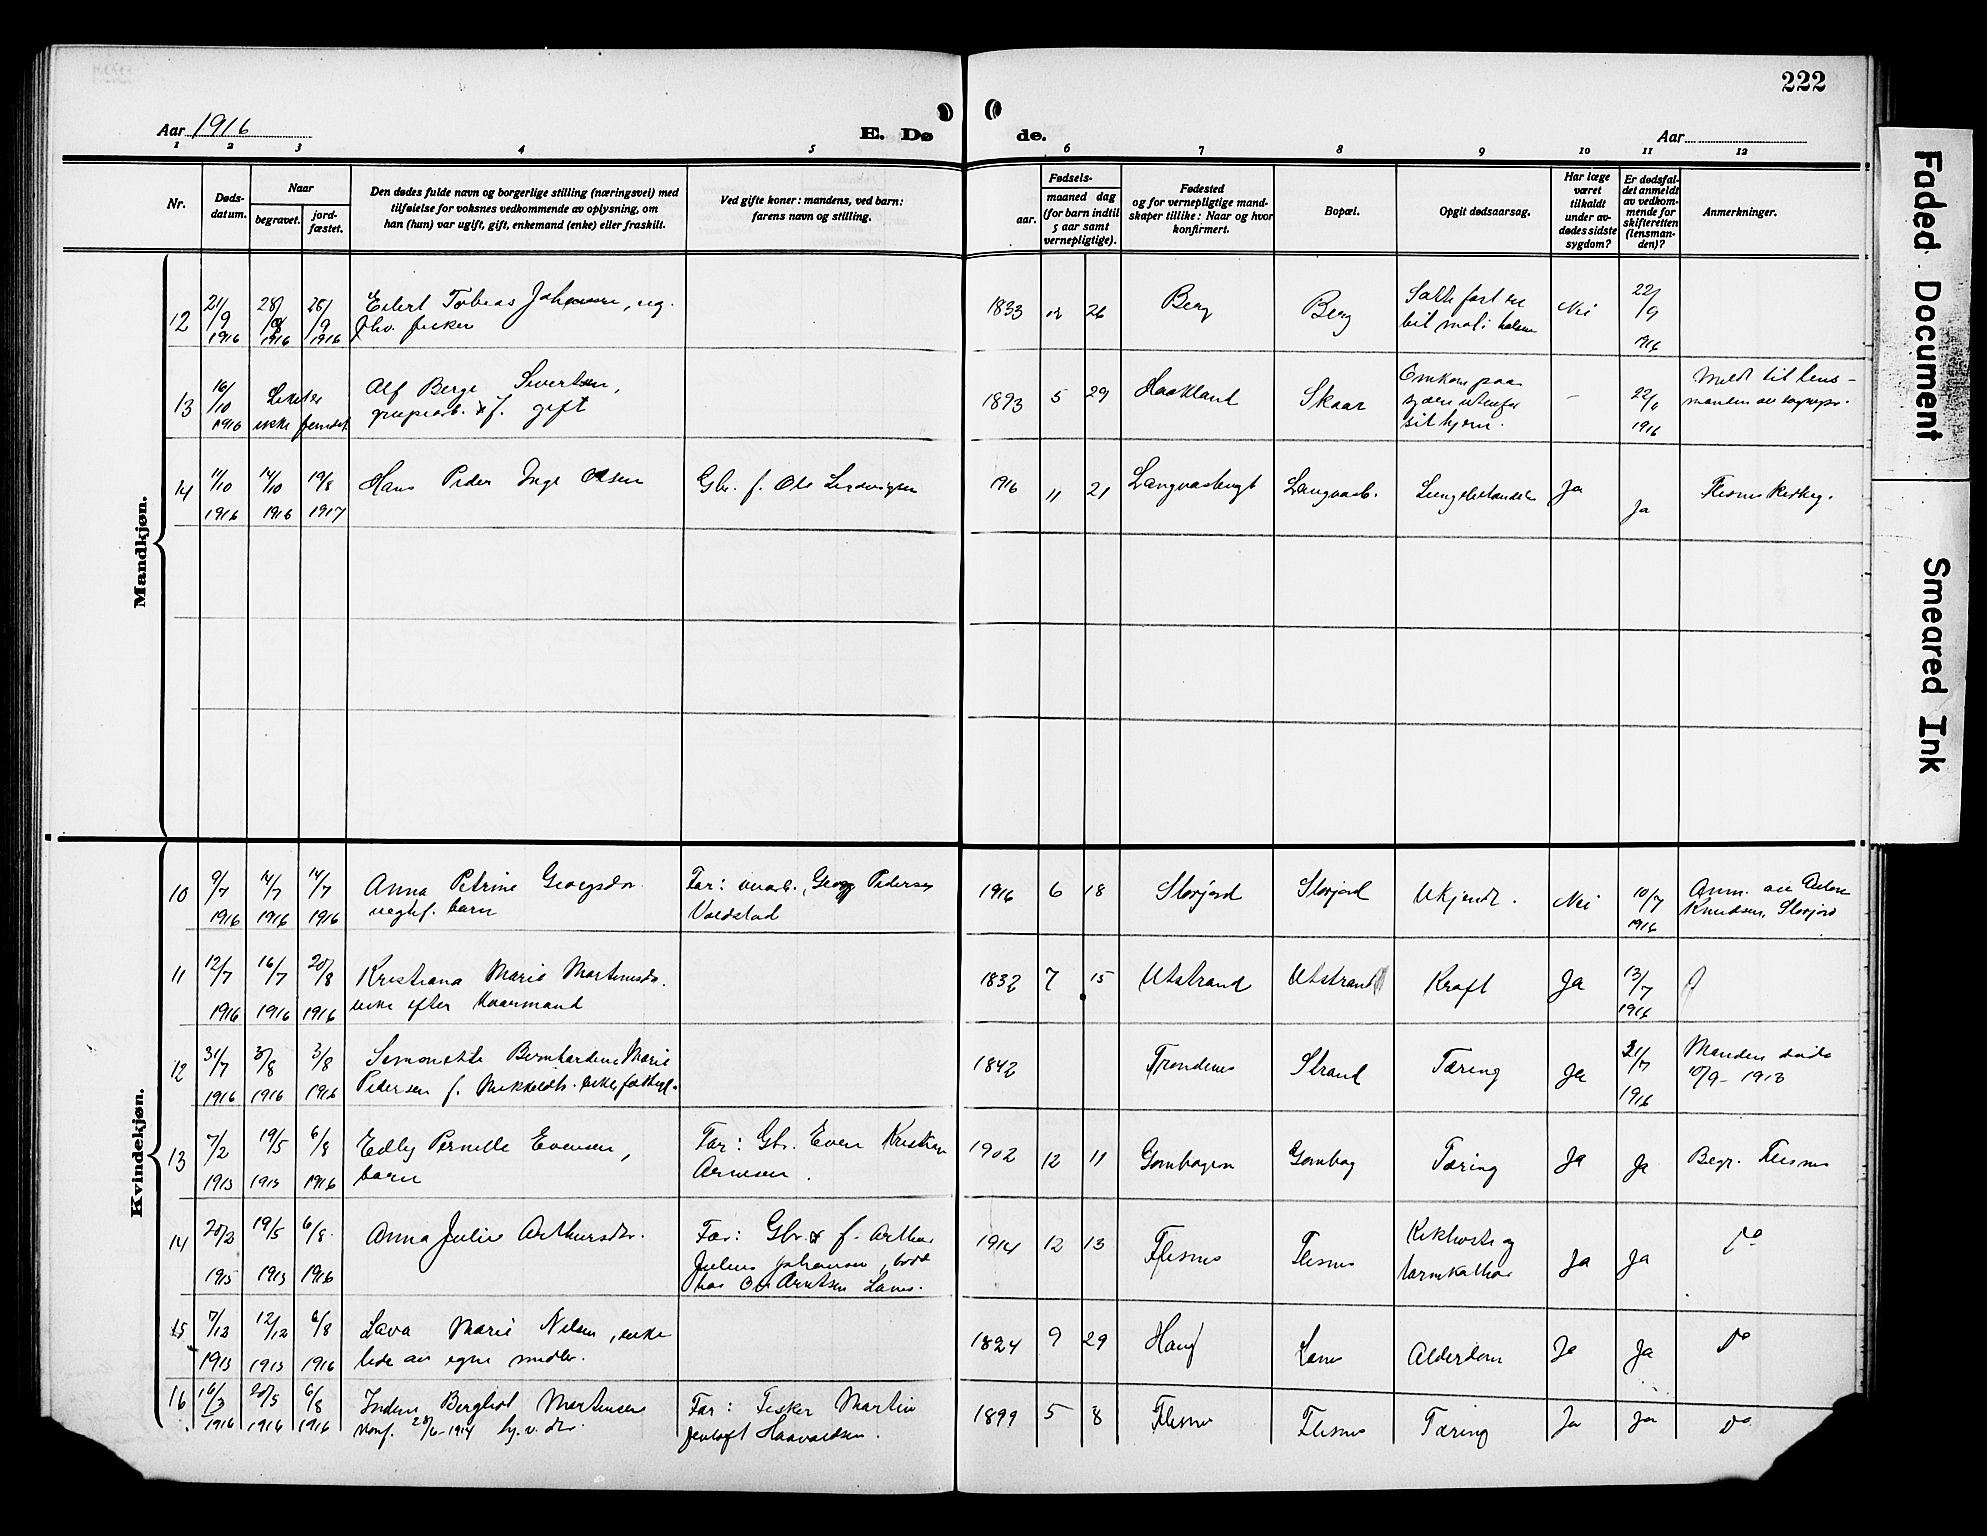 222
Aar 1916
E. Dø
de.
Aar
1 2 3 4 5 6 7 8 9 10 11 12
Nr.
Døds-
datum.
Naar
begravet.
jord-
fæstet.
Den dødes fulde navn og borgerlige stilling (næringsvei) med
tilføielse for voksnes vedkommende av oplysning, om
han (hun) var ugift, gift, enkemand (enke) eller fraskilt.
Ved gifte koner: mandens, ved barn:
farens navn og stilling.
Fødsels-
aar.
maaned dag
(for barn indtil
5 aar samt
vernepligtige).
Fødested
og for vernepligtige mand-
skaper tillike: Naar og hvor
konfirmert.
Bopæl.
Opgit dødsaarsag.
Har læge
været
tilkaldt
under av-
dødes sidste
sygdom?
Er dødsfal-
det anmeldt
av vedkom-
mende for
skifteretten
(lensman-
den)?
Anmerkninger.
Mandkjøn.
12
21/9 1916
28/9 1916
28/9 1916
Eilert Tobias Johansen, ug.
fisker
1833
26
Berg
Berg
Satte fast en
bit mat i halsen
Nei
22/9 1916
13
16/10 1916
Liket er
ikke fundet
Alf Berge Sivertsen,
grubearb. & f. gift
1893 5 29
Haakland
Skaar
Omkom paa
sjøen utenfor
sit hjem.
–
22/ 1916
Meldt til lens-
manden av sognepr.
14
11/10 1916
14/10 1916
19/8 1917
Hans Peder Inge Olsen
Gbr. f. Ole Ludvigsen
1916 11 21
Langvasbugt
Langvasb.
Lungebetændelse
Ja
Ja
Flesnes kirkeg.
Kvindekjøn.
10
9/7 1916
14/7 1916
14/7 1916
Anna Petrine Georgsdr.
uegtef. barn
Far: Georg Pedersen
Voldstad
1916 6 18
Storjord
Storjord
Ukjendt.
Nei
10/7 1916
Anm. av
Knudsen, Storjord
11
12/7 1916
16/7 1916
20/8 1916
Kristiana Marie Martinusdr.
enke efter Kvaarmand
1832 7 15
Utstrand
Utstrand
Kræft
Ja
13/7 1916
12
31/7 1916
3/8 1916
3/8 1916
Simonette Bernhardine Marie
Pedersen f. Mikkelsdtr. enke
1842
Trondenes
Strand
Tæring
Ja
31/7 1916
Manden døde
10/9 - 1913
13
7/2 1915
19/5 1915
6/8 1916
Edly Pernille Evensen,
barn
Far: Gbr. Even Kristian
Arnesen.
1902 12 11
Gombogen
Gombog
Tæring
Ja
Ja
Begr. Flesnes
14
20/3 1915
19/5 1915
6/8 1916
Anna Julie Arthursdr.
Far: Gbr. & f. Arthur
Julius Johansen, bodde
hos Ole Arntsen Lanes.
1914 12 13
Flesnes
Flesnes
Kikhoste og
tarmkatthar
Ja
Ja
Do
15
7/12 1915
12/12 1915
6/8 1916
Lava Marie Nilsen, enke
lede av egne midler.
1824 9 29
Haug
Lanes
Alderdom
Ja
Ja
Do
16
16/3 1916
20/5 1916
6/8 1916
Indine Bergliot Martinsen
konf. 28/6-1914 hj.v. dtr.
Far: Fisker Martin
Jentoft Haavardsen.
1899 5 8
Flesnes
Flesnes
Tæring
Ja
Ja
Do
Faded Document
Smeared Ink